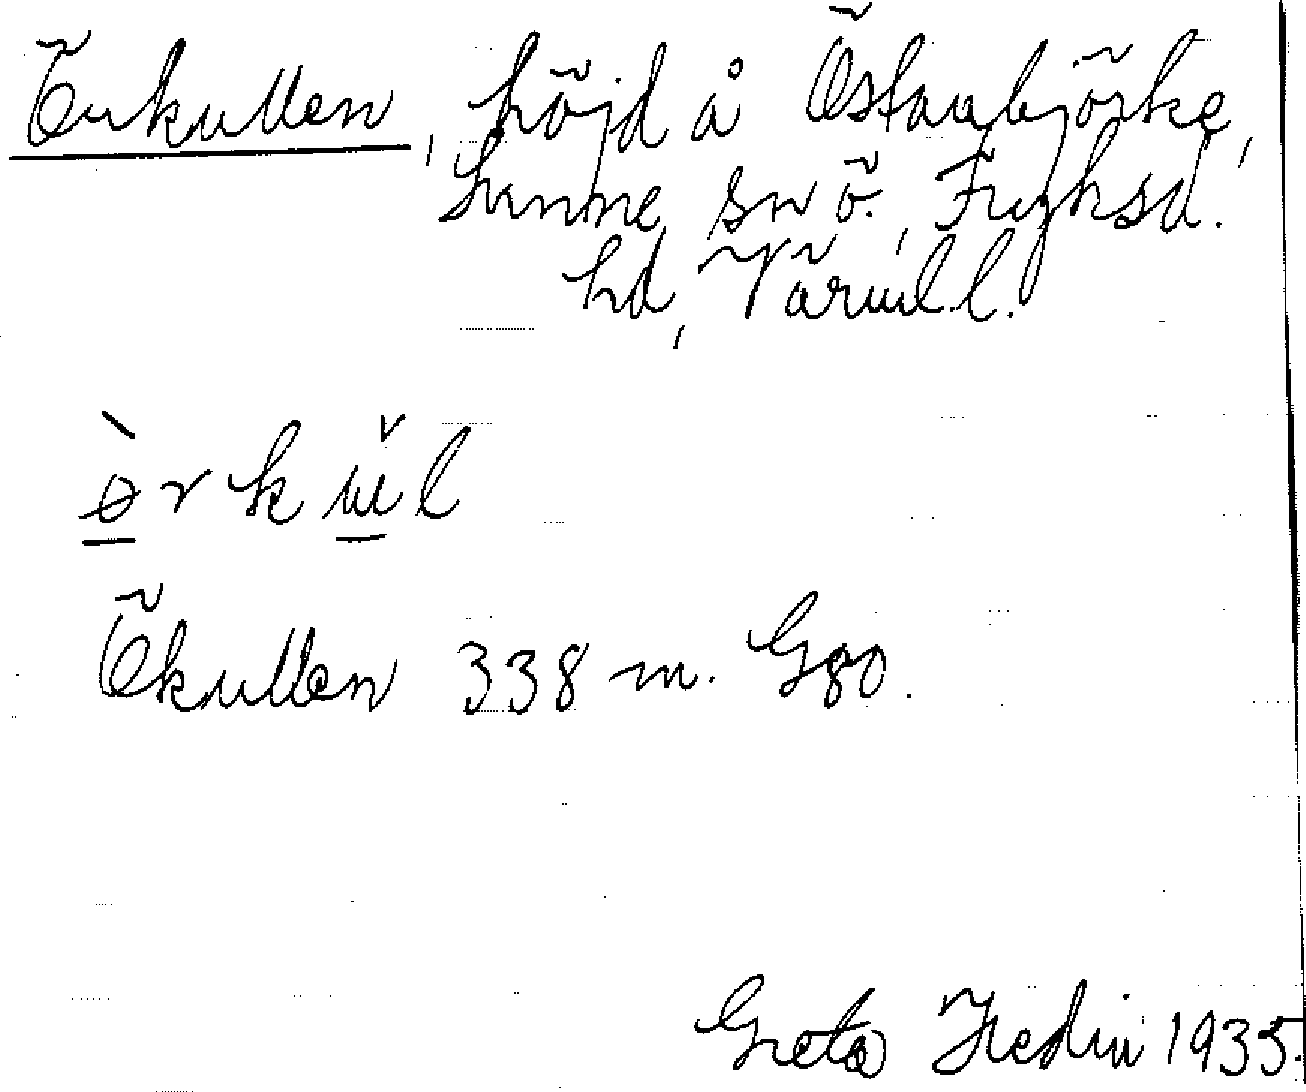 Örkullen, höjd å Östanbjörke,
Sunne sn ö., Fryksd.
hd, Värml. l.
ørkul
Ökullen 338 m. G80.
Greta Hedin 1935.